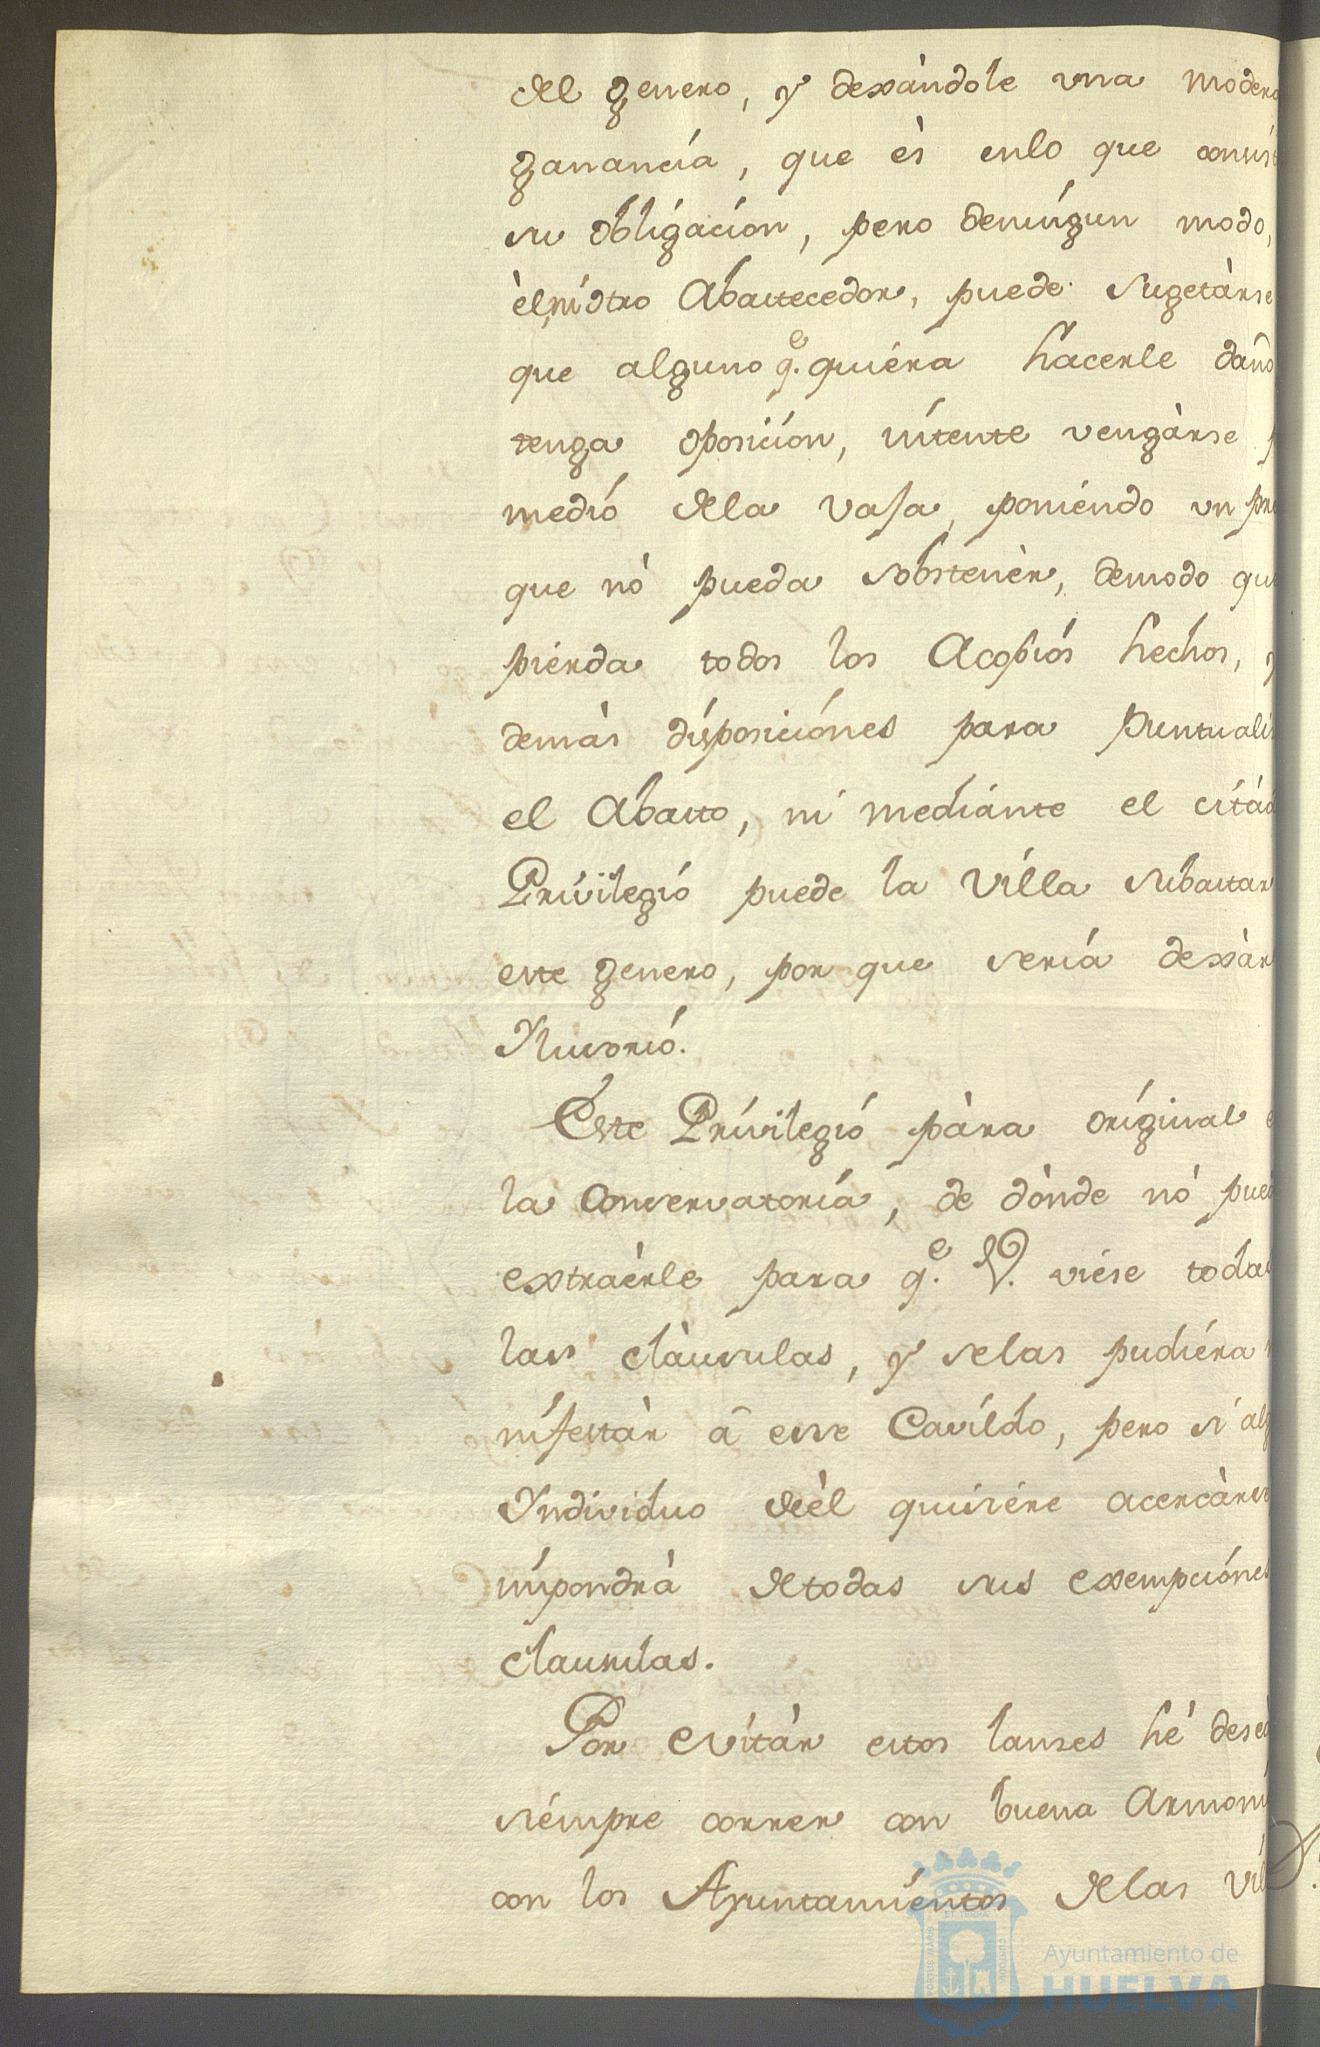 del genero, y dexàndole vna modera
ganancía, que ès enlo que consíst
su obligacíon, pero deníngun modo,
èl, ní otro Abastecedor, puede sugetàrse
que alguno q.e quiéra hacerle daño
tenga oposicíon, íntente vengàrse p
medíó dela vaja, poniéndo un pre
que nò pueda sobstenèr, demodo que
piérda todos los Acopíós hechos, y
demàs dísposiciónes para Puntualiz
el Abasto, ní mediánte el citád
Prívilegíó puede la Villa subastar
este genero, por que sería dexàr
Ylusoríó.
Este Prívilegíó pàra orígínal e
la Conservatoría, de dònde nó pued
extraèrle para q.e V. viése todas
las clàusulas, y selas pudiéra
nífestàr â esse Cavíldo, pero sí alg
Yndividuo deèl quisiére acercàrse
ímpondrà detodas sus exempciónes
clausulas.
Por evítàr estos lanzes hé dese
siémpre correr con buena Armoní
con los Ayuntamíentos delas Vill
Ayuntamiento de
HUELVA